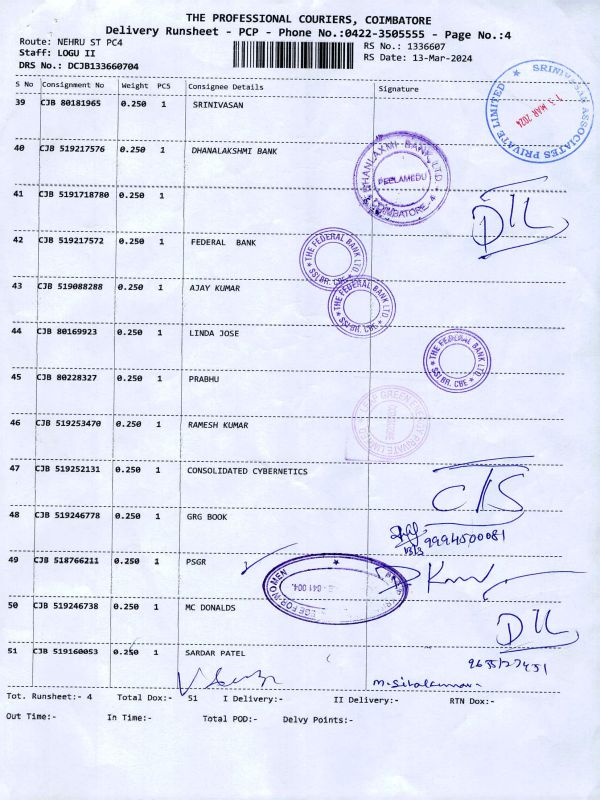 THE PROFESSIONAL COURIERS, COIMBATORE
Delivery Runsheet - PCP - Phone No.:0422-3505555 - Page No.:4
Route: NEHRU ST PC4
RS No.: 1336607
Staff: LOGU II
RS Date: 13-Mar-2024
DRS No.: DCJB133660704
S No Consignment No Weight PCS Consignee Details Signature
39 CJB 80181965 0.250 1 SRINIVASAN
SRINIVASAN ASSOCIATES PRIVATE LIMITED
13 MAR 2024
40 CJB 519217576 0.250 1 DHANALAKSHMI BANK
DHANLAXMI BANK LTD.
PEELAMEDU
COIMBATORE-4
41 CJB 5191718780 0.250 1
42 CJB 519217572 0.250 1 FEDERAL BANK
THE FEDERAL BANK LTD
SSI BR. CBE
43 CJB 519088288 0.250 1 AJAY KUMAR
THE FEDERAL BANK LTD
SSI BR. CBE
44 CJB 80169923 0.250 1 LINDA JOSE
THE FEDERAL BANK LTD
SSI BR. CBE
45 CJB 80228327 0.250 1 PRABHU
46 CJB 519253470 0.250 1 RAMESH KUMAR
GREEN PRIVATE LIMITED
47 CJB 519252131 0.250 1 CONSOLIDATED CYBERNETICS
48 CJB 519246778 0.250 1 GRG BOOK
13/3 9994500081
49 CJB 518766211 0.250 1 PSGR
FOR WOMEN
641 004.
50 CJB 519246738 0.250 1 MC DONALDS
51 CJB 519160053 0.250 1 SARDAR PATEL
Tot. Runsheet:- 4 Total Dox:- 51 I Delivery:- II Delivery:- RTN Dox:-
Out Time:- In Time:- Total POD:- Delvy Points:-